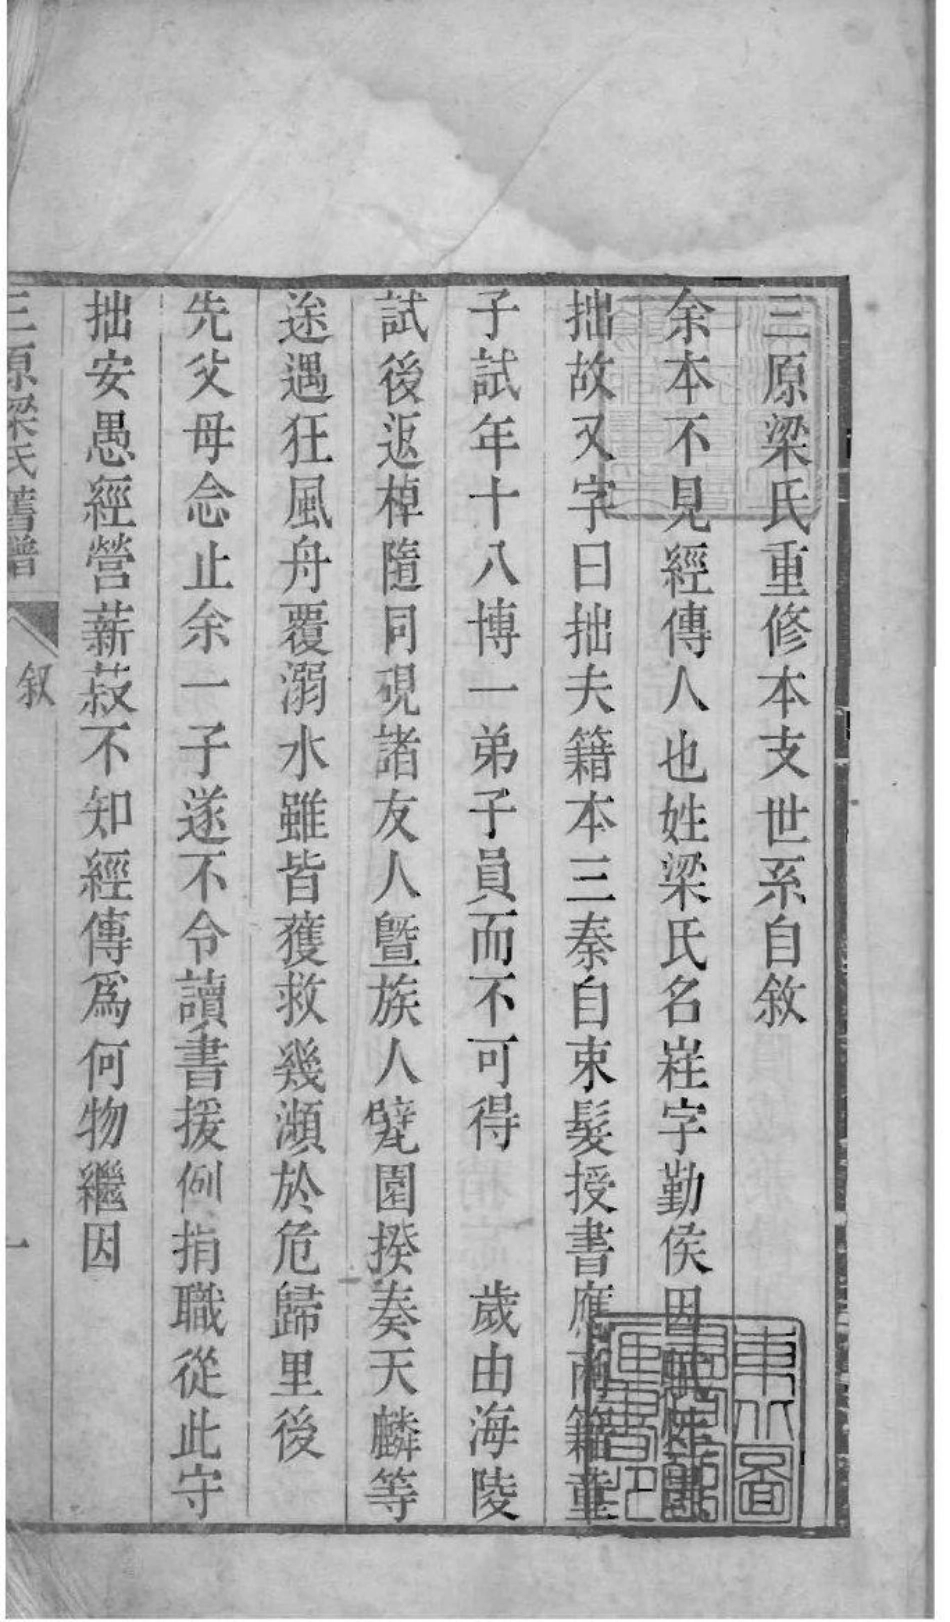 三原梁氏重修本支世系自敘
余本不見經傳人也姓梁氏名嵀字勤侯因賦性
拙故又字曰拙夫籍本三秦自束髮授書應商籍童
子試年十八博一弟子員而不可得 歲由海陵
試後返棹隨同硯諸友人曁族人甓園揆奏天麟等
途遇狂風舟覆溺水雖皆獲救幾瀕於危歸里後
先父母念止余一子遂不令讀書援例捐職從此守
拙安愚經營薪菽不知經傳爲何物繼因
三原梁氏舊譜 叙 一